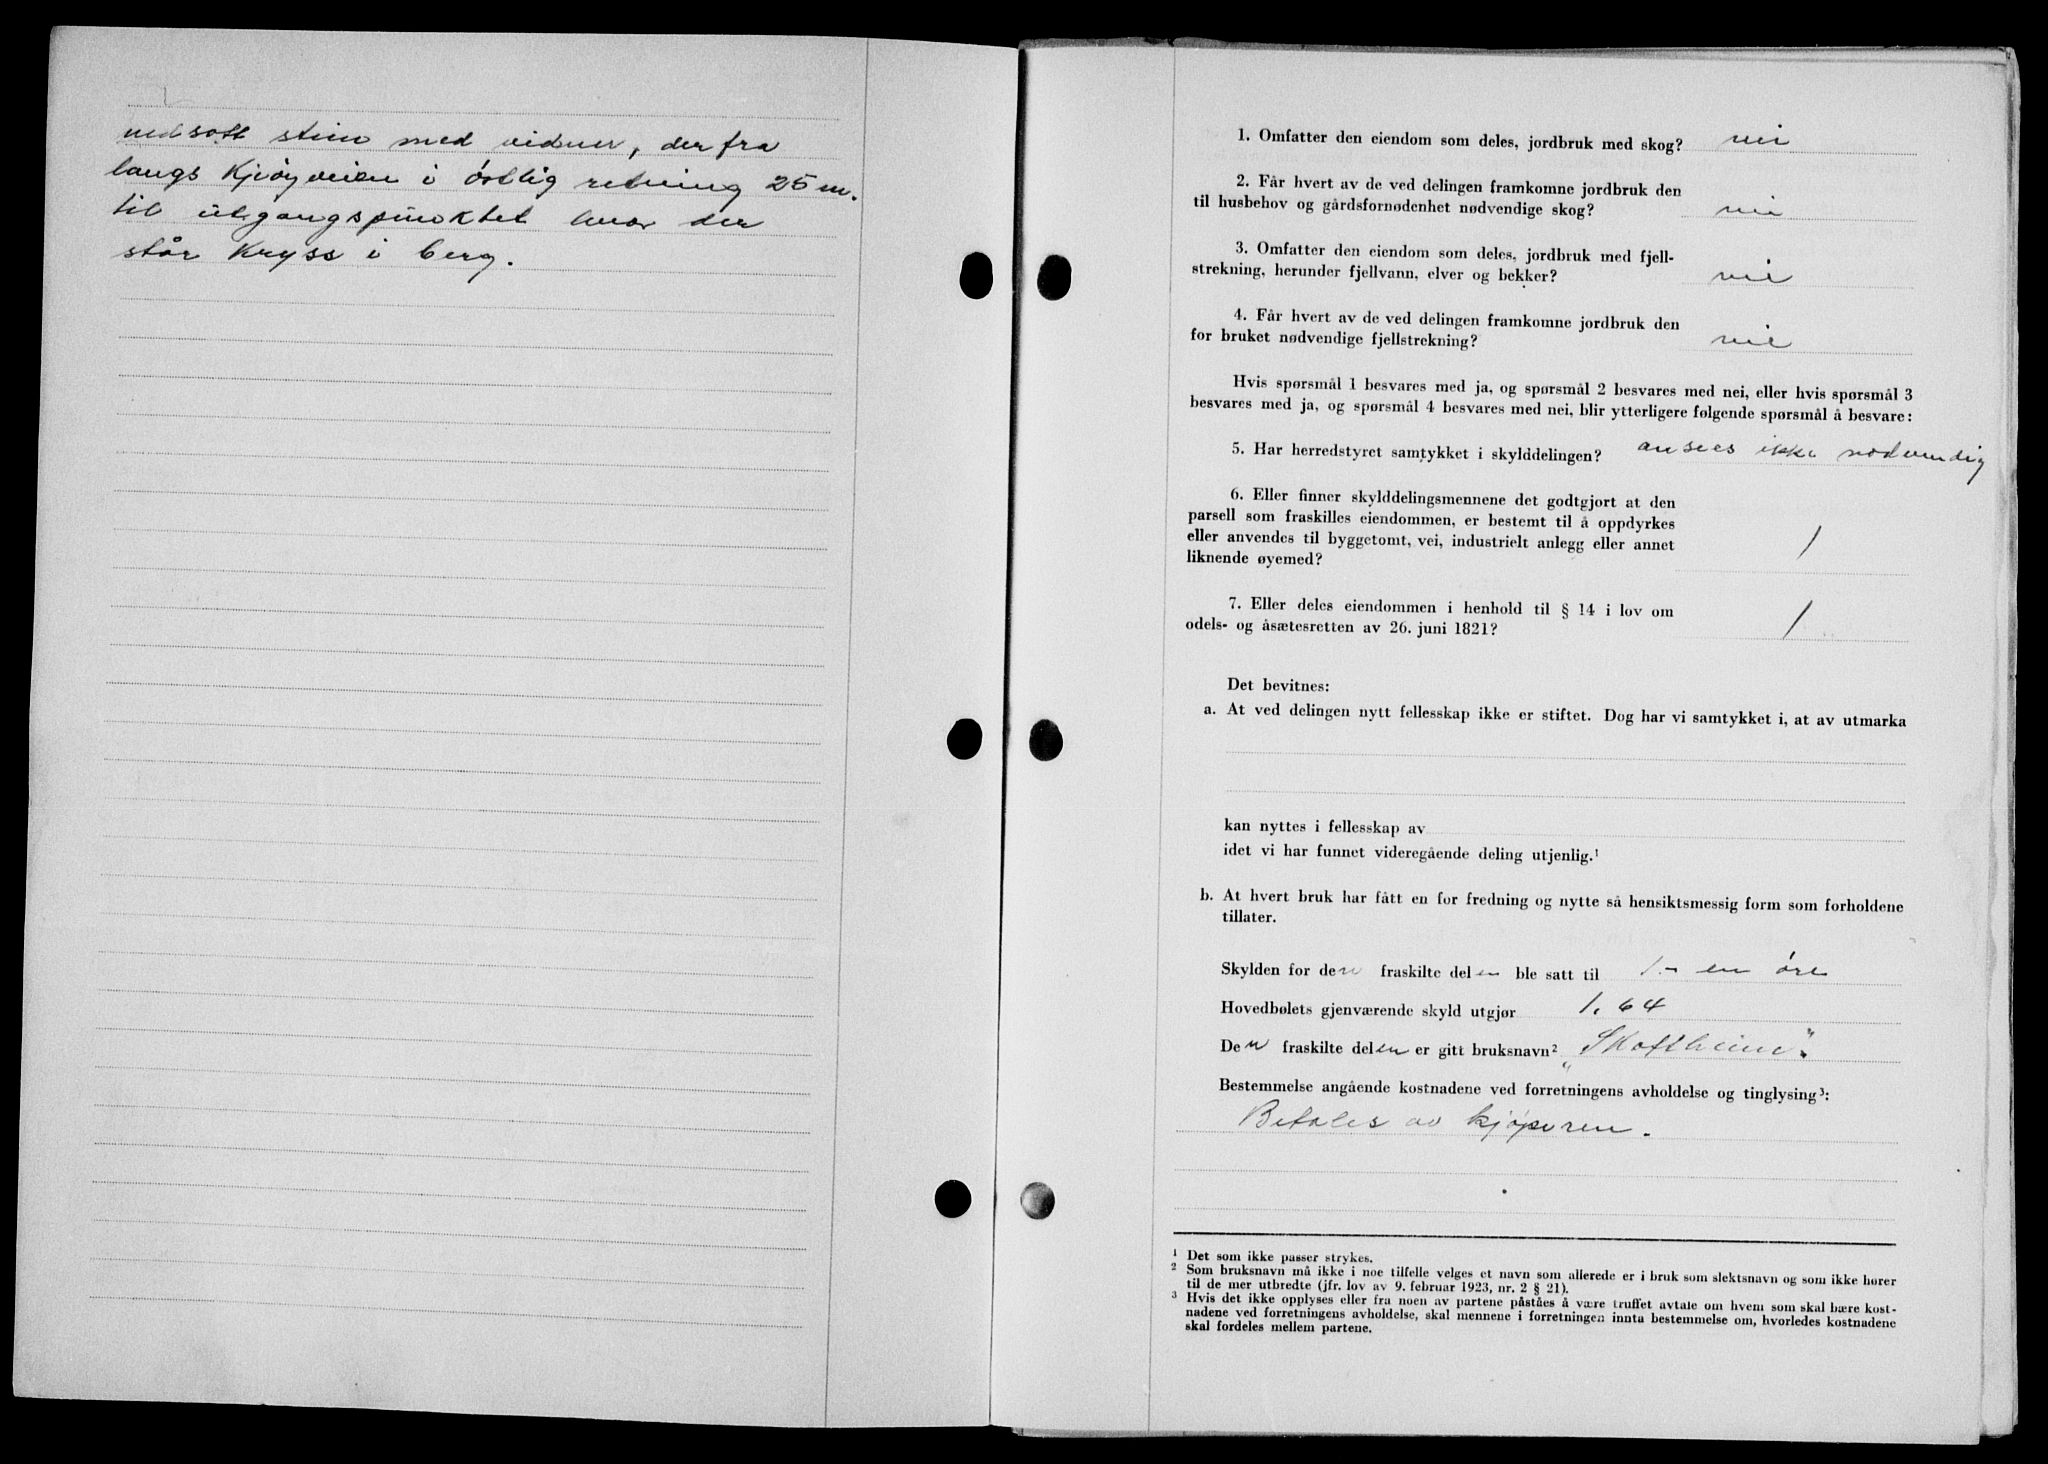 nedsatt stein med vidner, der fra
langs Kjiøyveien i østlig retning 25 m.
til utgangspunktet hvor der
står Kryss i berg.
1. Omfatter den eiendom som deles, jordbruk med skog? nei
2. Får hvert av de ved delingen framkomne jordbruk den
til husbehov og gårdsfornødenhet nødvendige skog? nei
3. Omfatter den eiendom som deles, jordbruk med fjell-
strekning, herunder fjellvann, elver og bekker? nei
4. Får hvert av de ved delingen framkomne jordbruk den
for bruket nødvendige fjellstrekning? nei
Hvis spørsmål 1 besvares med ja, og spørsmål 2 besvares med nei, eller hvis spørsmål 3
besvares med ja, og spørsmål 4 besvares med nei, blir ytterligere følgende spørsmål å besvare:
5. Har herredstyret samtykket i skylddelingen? ansees ikke nødvendig
6. Eller finner skylddelingsmennene det godtgjort at den
parsell som fraskilles eiendommen, er bestemt til å oppdyrkes
eller anvendes til byggetomt, vei, industrielt anlegg eller annet
liknende øyemed? /
7. Eller deles eiendommen i henhold til § 14 i lov om
odels- og åsætesretten av 26. juni 1821? /
Det bevitnes:
a. At ved delingen nytt fellesskap ikke er stiftet. Dog har vi samtykket i, at av utmarka
kan nyttes i fellesskap av
idet vi har funnet videregående deling utjenlig.¹
b. At hvert bruk har fått en for fredning og nytte så hensiktsmessig form som forholdene
tillater.
Skylden for den fraskilte delen ble satt til 1.- en øre
Hovedbølets gjenværende skyld utgjør 1.64
Den fraskilte delen er gitt bruksnavn² „Skoftheim".
Bestemmelse angående kostnadene ved forretningens avholdelse og tinglysing³:
Betales av kjøperen.
¹ Det som ikke passer strykes.
² Som bruksnavn må ikke i noe tilfelle velges et navn som allerede er i bruk som slektsnavn og som ikke hører
til de mer utbredte (jfr. lov av 9. februar 1923, nr. 2 § 21).
³ Hvis det ikke opplyses eller fra noen av partene påståes å være truffet avtale om hvem som skal bære kost-
nadene ved forretningens avholdelse, skal mennene i forretningen innta bestemmelse om, hvorledes kostnadene
skal fordeles mellem partene.